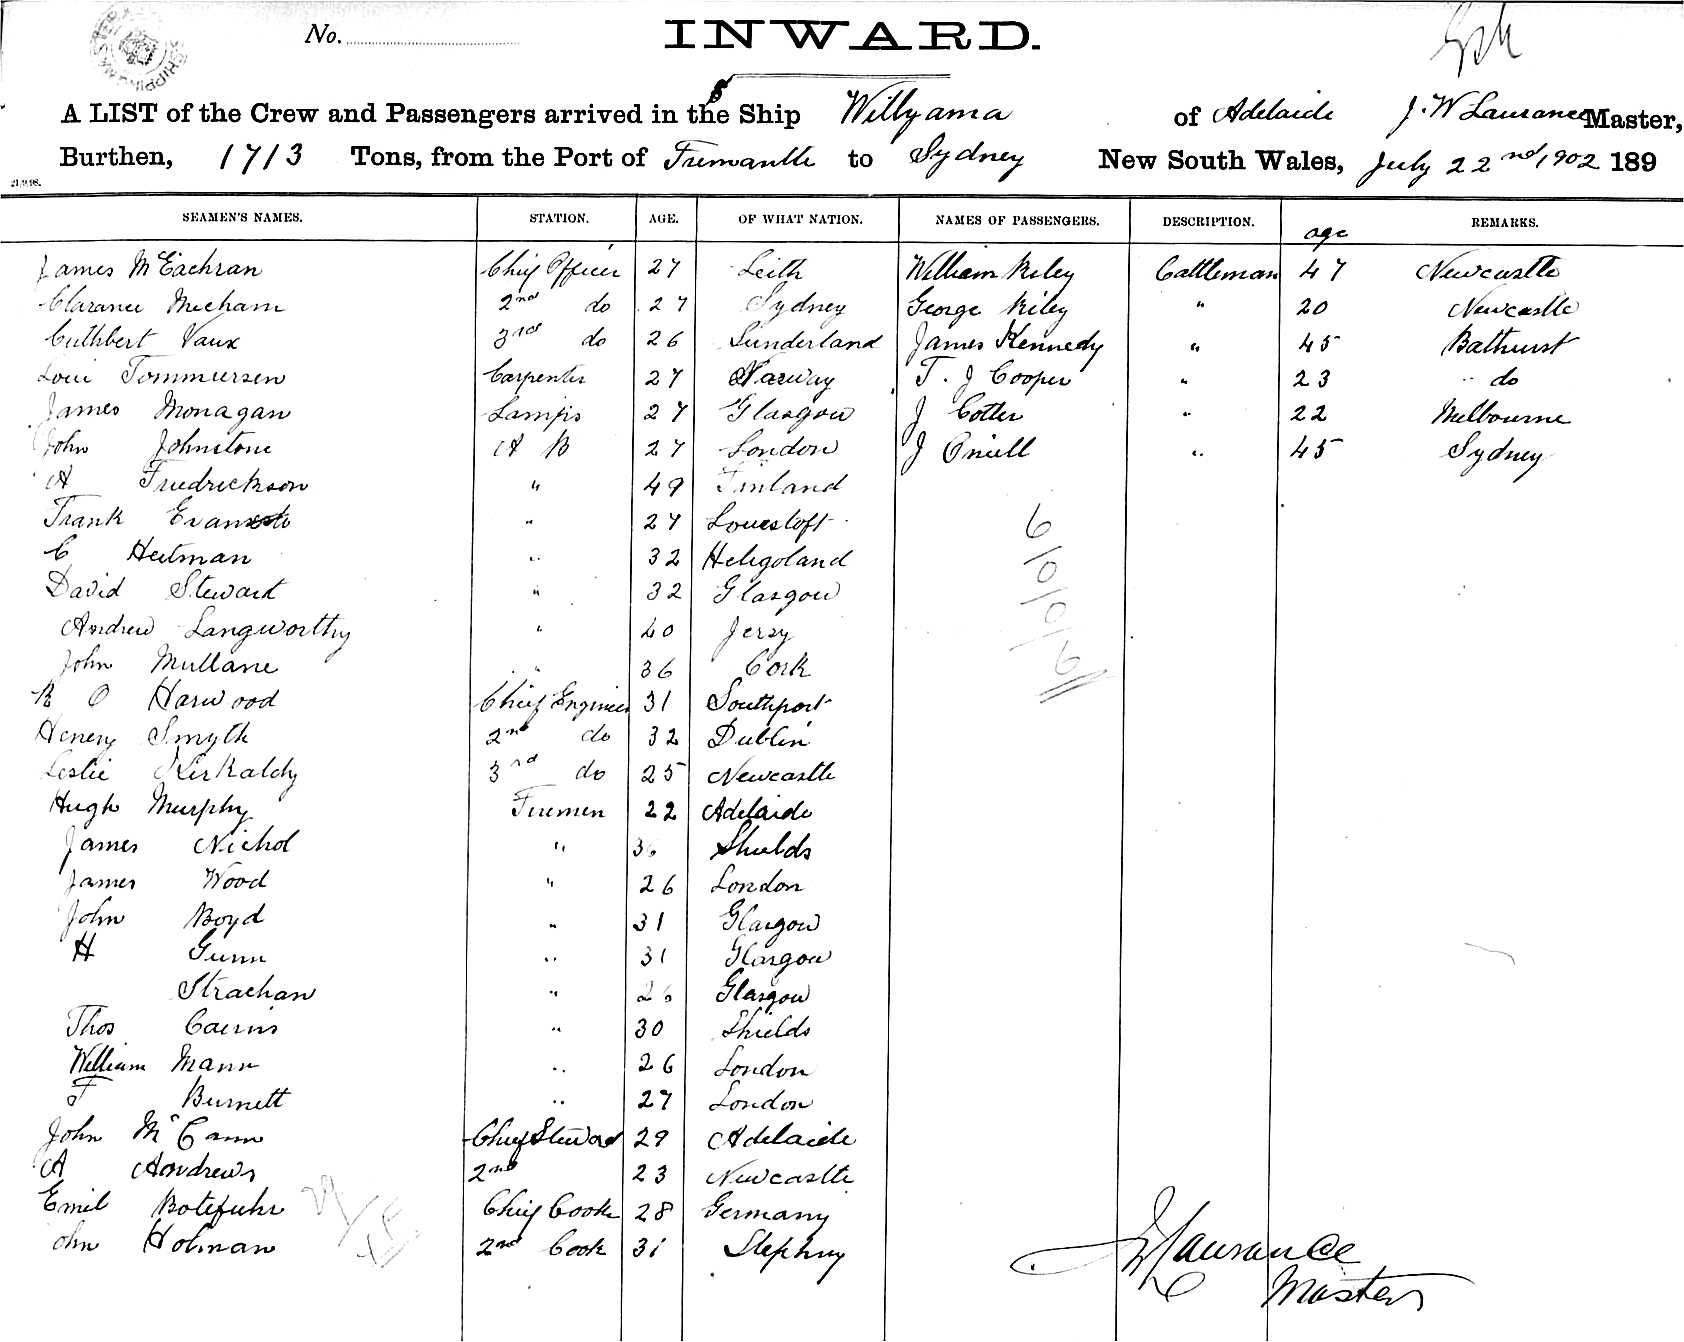 No.
INWARD.
A LIST of the Crew and Passengers arrived in the Ship Willyama of Adelaide J. W Laurance Master,
Burthen, 1713 Tons, from the Port of Fremantle to Sydney New South Wales, July 22nd, 1902 189
21.9.98.
SEAMEN'S NAMES. STATION. AGE. OF WHAT NATION. NAMES OF PASSENGERS. DESCRIPTION. age REMARKS.
James McEachran Chief Officer 27 Leith William Riley Cattleman 47 Newcastle
Clarance Mecham 2nd do 27 Sydney George Riley " 20 Newcastle
Cuthbert Vaux 3rd do 26 Sunderland James Kennedy " 45 Bathurst
Loui Tommersen Carpenter 27 Norway T. J Cooper " 23 " do
James Monagan Lamps 27 Glasgow J Cotter " 22 Melbourne
John Johnstone A B 27 London J Oniell " 45 Sydney
A Friedrickson " 49 Finland
Frank Evans " 27 Lowestoft
C Heitman " 32 Heligoland
David Stewart " 32 Glasgow
Andrew Langworthy " 40 Jersy
John Mullane " 36 Cork
R O Harwood Chief Engineer 31 Southport
Henery Smyth 2nd do 32 Dublin
Leslie Kirkaldy 3rd do 25 Newcastle
Hugh Murphy Firemen 22 Adelaide
James Nichol " 36 Shields
James Wood " 26 London
John Boyd " 31 Glasgow
H Gunn " 31 Glasgow
Strachan " 26 Glasgow
Thos Cairns " 30 Shields
William Mann " 26 London
F Burnett " 27 London
John McCann Chief Steward 29 Adelaide
A Andrews 2nd 23 Newcastle
Emil Botefuhr Chief Cook 28 Germany
ohn Holman 2nd Cook 31 Stephny
J W Laurance
Master